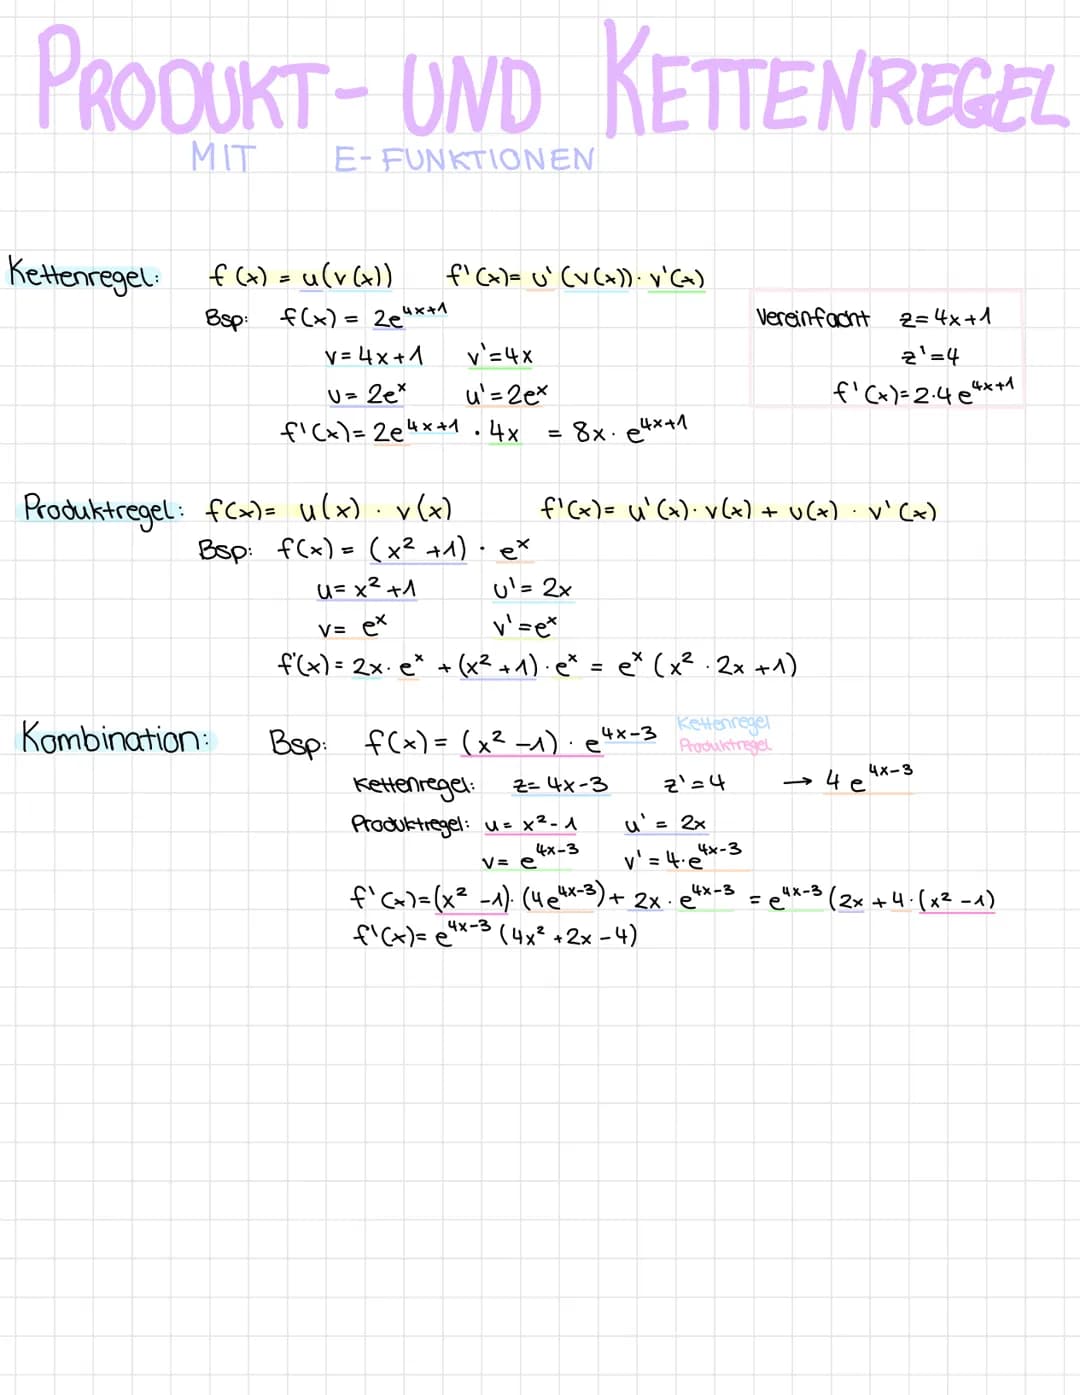 PRODUKT- UND KETTENREGEL
MIT E-FUNKTIONEN
Kettenregel: f(x) = u(v(x)) f'(x)= u'(v(x))· v'(x)
Bsp: f(x) = 2e^{4x+1}
v= 4x+1 v'=4x
u= 2e^x u'=2e^x
f'(x)= 2e^{4x+1} · 4x = 8x· e^{4x+1}
Vereinfacht z=4x+1
z'=4
f'(x)=2·4 e^{4x+1}
Produktregel: f(x)= u(x) · v(x) f'(x)= u'(x)· v(x) + u(x) · v'(x)
Bsp: f(x) = (x² +1) · e^x
u= x² +1 u'= 2x
v= e^x v'=e^x
f'(x)= 2x· e^x + (x² +1)· e^x = e^x (x² · 2x +1)
Kombination: Bsp: f(x)= (x² -1) · e^{4x-3} Kettenregel
Produktregel
Kettenregel: z= 4x-3 z'=4 → 4 e^{4x-3}
Produktregel: u= x²-1 u' = 2x
v= e^{4x-3} v' = 4·e^{4x-3}
f'(x)=(x² -1)· (4e^{4x-3})+ 2x · e^{4x-3} = e^{4x-3} (2x +4·(x² -1)
f'(x)= e^{4x-3} (4x² +2x -4)